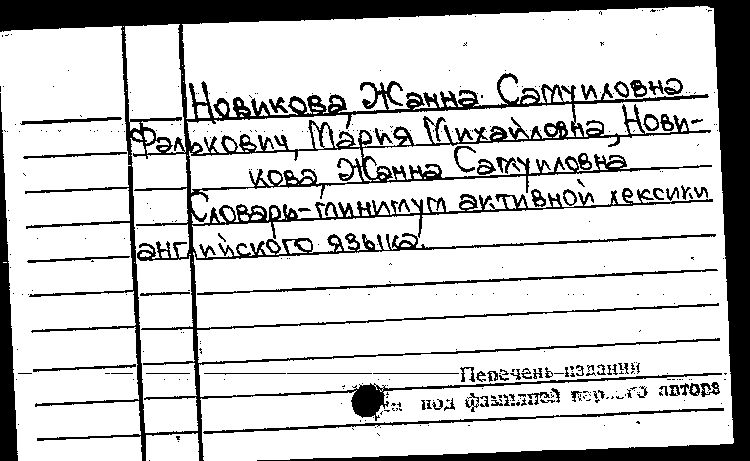 Новикова, Жанна Самуиловна
Фалькович, Мария Михайловна, Нови-
кова, Жанна Самуиловна
Словарь-минимум активной лексики
английского языка.
Перечень изданий
см под фамилией первого автора